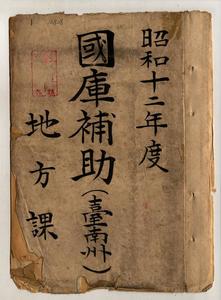 昭和十二年度
國庫補助(臺南州)
地方課